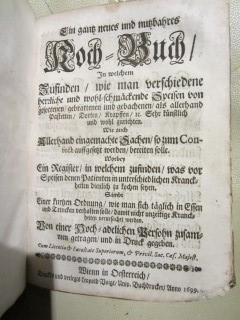 Ein gantz neues und nutzbahres
Koch-Buch/
In welchem
Zufinden/ wie man verschiedene
herrliche und wohl-schmäckende Speisen von
gesottenen/ gebrattenen und gebachenen/ als allerhand
Pasteten/ Dorten/ Krapffen/ ꝛc. Sehr künstlich
und wohl zurichten.
Wie auch
Allerhand eingemachte Sachen/ so zum Con-
fect auffgesetzt werden/ bereiten solle.
Worbey
Ein Register/ in welchem zufinden/ was vor
Speisen denen Patienten in unterschiedlichen Kranck-
heiten dienlich zu kochen seyen.
Sambt
Einer kurtzen Ordnung/ wie man sich täglich in Essen
und Trincken verhalten solle/ damit nicht unzeitige Kranck-
heiten verursachet werden.
Von einer Hoch-adelichen Persohn zusam-
men getragen/ und in Druck gegeben.
Cum Licentia & Facultate Superiorum, & Privil. Sac. Cæs. Majest.
Wienn in Oesterreich/
Leopold Voigt/ Univ. Buchdrucker/ Anno 1699.